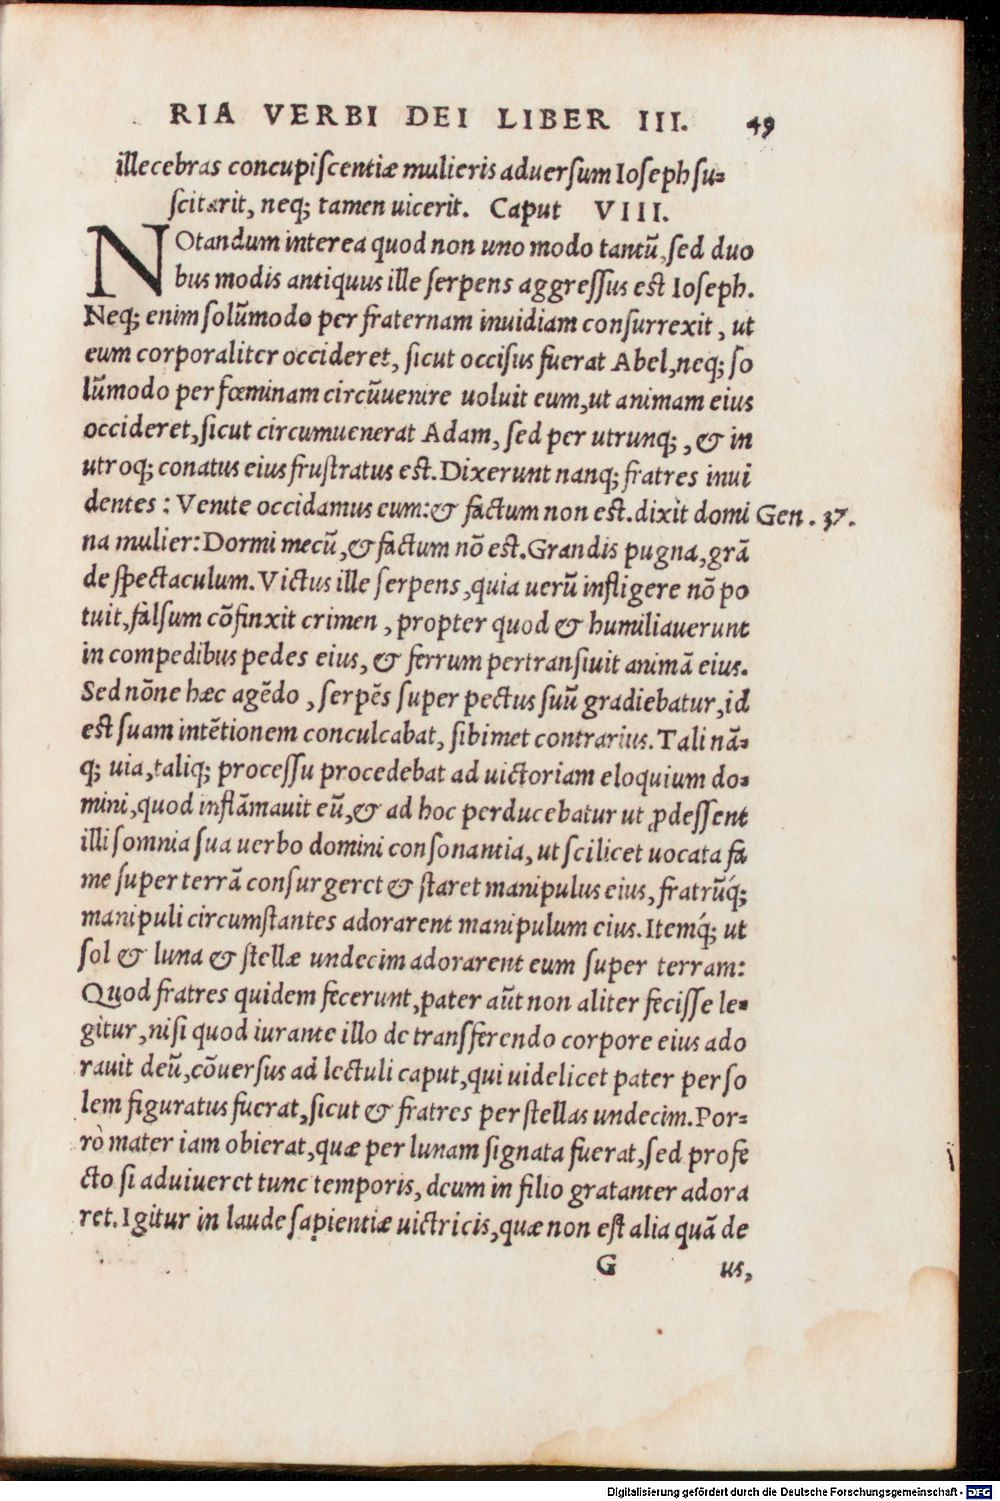 RIA VERBI DEI LIBER III. 49
illecebras concupiſcentiæ mulieris aduerſum Ioſeph ſu=
ſcitarit, neq; tamen uicerit. Caput VIII.
NOtandum interea quod non uno modo tantũ, ſed duo
bus modis antiquus ille ſerpens aggreſſus eſt Ioſeph.
Neq; enim ſolũmodo per fraternam inuidiam conſurrexit, ut
eum corporaliter occideret, ſicut occiſus fuerat Abel, neq; ſo
lũmodo per fœminam circũuenire uoluit eum, ut animam eius
occideret, ſicut circumuenerat Adam, ſed per utrunq;, & in
utroq; conatus eius fruſtratus eſt. Dixerunt nanq; fratres inui
dentes: Venite occidamus eum: & factum non eſt. dixit domi Gen. 37.
na mulier: Dormi mecũ, & factum nõ eſt. Grandis pugna, grã
de ſpectaculum. Victus ille ſerpens, quia uerũ infligere nõ po
tuit, falſum cõfinxit crimen, propter quod & humiliauerunt
in compedibus pedes eius, & ferrum pertranſiuit animã eius.
Sed nõne hæc agẽdo, ſerpẽs ſuper pectus ſuũ gradiebatur, id
eſt ſuam intẽtionem conculcabat, ſibimet contrarius. Tali nã=
q; uia, taliq; proceſſu procedebat ad uictoriam eloquium do=
mini, quod inflãmauit eũ, & ad hoc perducebatur ut ꝓdeſſent
illi ſomnia ſua uerbo domini conſonantia, ut ſcilicet uocata fa
me ſuper terrã conſurgeret & ſtaret manipulus eius, fratrũq́;
manipuli circumſtantes adorarent manipulum eius. Itemq́; ut
ſol & luna & ſtellæ undecim adorarent eum ſuper terram:
Quod fratres quidem fecerunt, pater aũt non aliter feciſſe le=
gitur, niſi quod iurante illo de transferendo corpore eius ado
rauit deũ, cõuerſus ad lectuli caput, qui uidelicet pater per ſo
lem figuratus fuerat, ſicut & fratres per ſtellas undecim. Por=
rò mater iam obierat, quæ per lunam ſignata fuerat, ſed profe
cto ſi aduiueret tunc temporis, deum in filio gratanter adora
ret. Igitur in laude ſapientiæ uictricis, quæ non eſt alia quã de
G us,
Digitalisierung gefördert durch die Deutsche Forschungsgemeinschaft - DFG